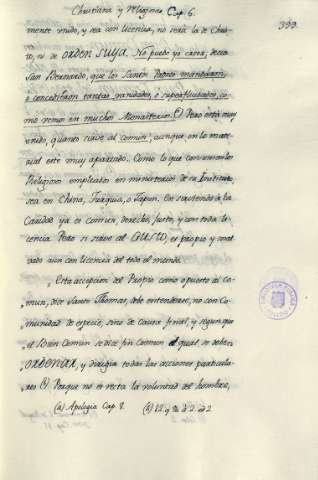 Christiana y Religiosa Cap. 6.
399.
mente unido, y sea con licencia, no será la de Chris-
to, ni de ORDEN SUYA. No puedo yo creer, decia
San Bernardo, que los Santos Padres mandaran,
ò concedieran tantas vanidades, ò superfluidades, co-
mo vemos en muchos Monasterios. Pero está muy
unido, quanto sirve al comun, aunque en lo mate-
rial esté muy apartado. Como lo que consumen los
Religiosos empleados en ministerios de su Instituto
sea en China, Turquia, o Japon. En sirviendo à la
Caridad ya es comun, derecho, justo, y con toda li-
cencia. Pero si sirve al GUSTO, es propio y mal-
vado aun con licencia del todo el mundo.
Esta accepcion del Proprio como opuesto al co-
mun, dice Santo Thomas, debe entenderse, no con Co-
munidad de especie, sino de Causa final, y segun que
el Bien Comun se dice fin Comun al qual, se deben
ORDENAR, y dirigir todas las acciones particula-
res. Porque no es recta la voluntad del hombre,
(a) Apologia Cap. 8.